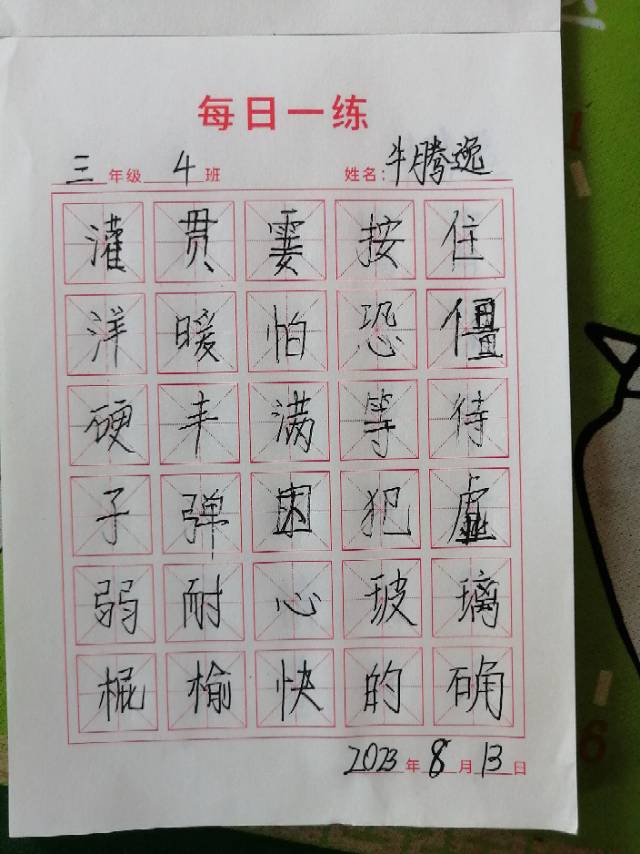 每日一练
三年级4班 姓名:牛腾逸
灌贯霎按住
洋暖怕恐僵
硬丰满等待
子弹困犯虚
弱耐心玻璃
棍榆快的确
2023年8月13日